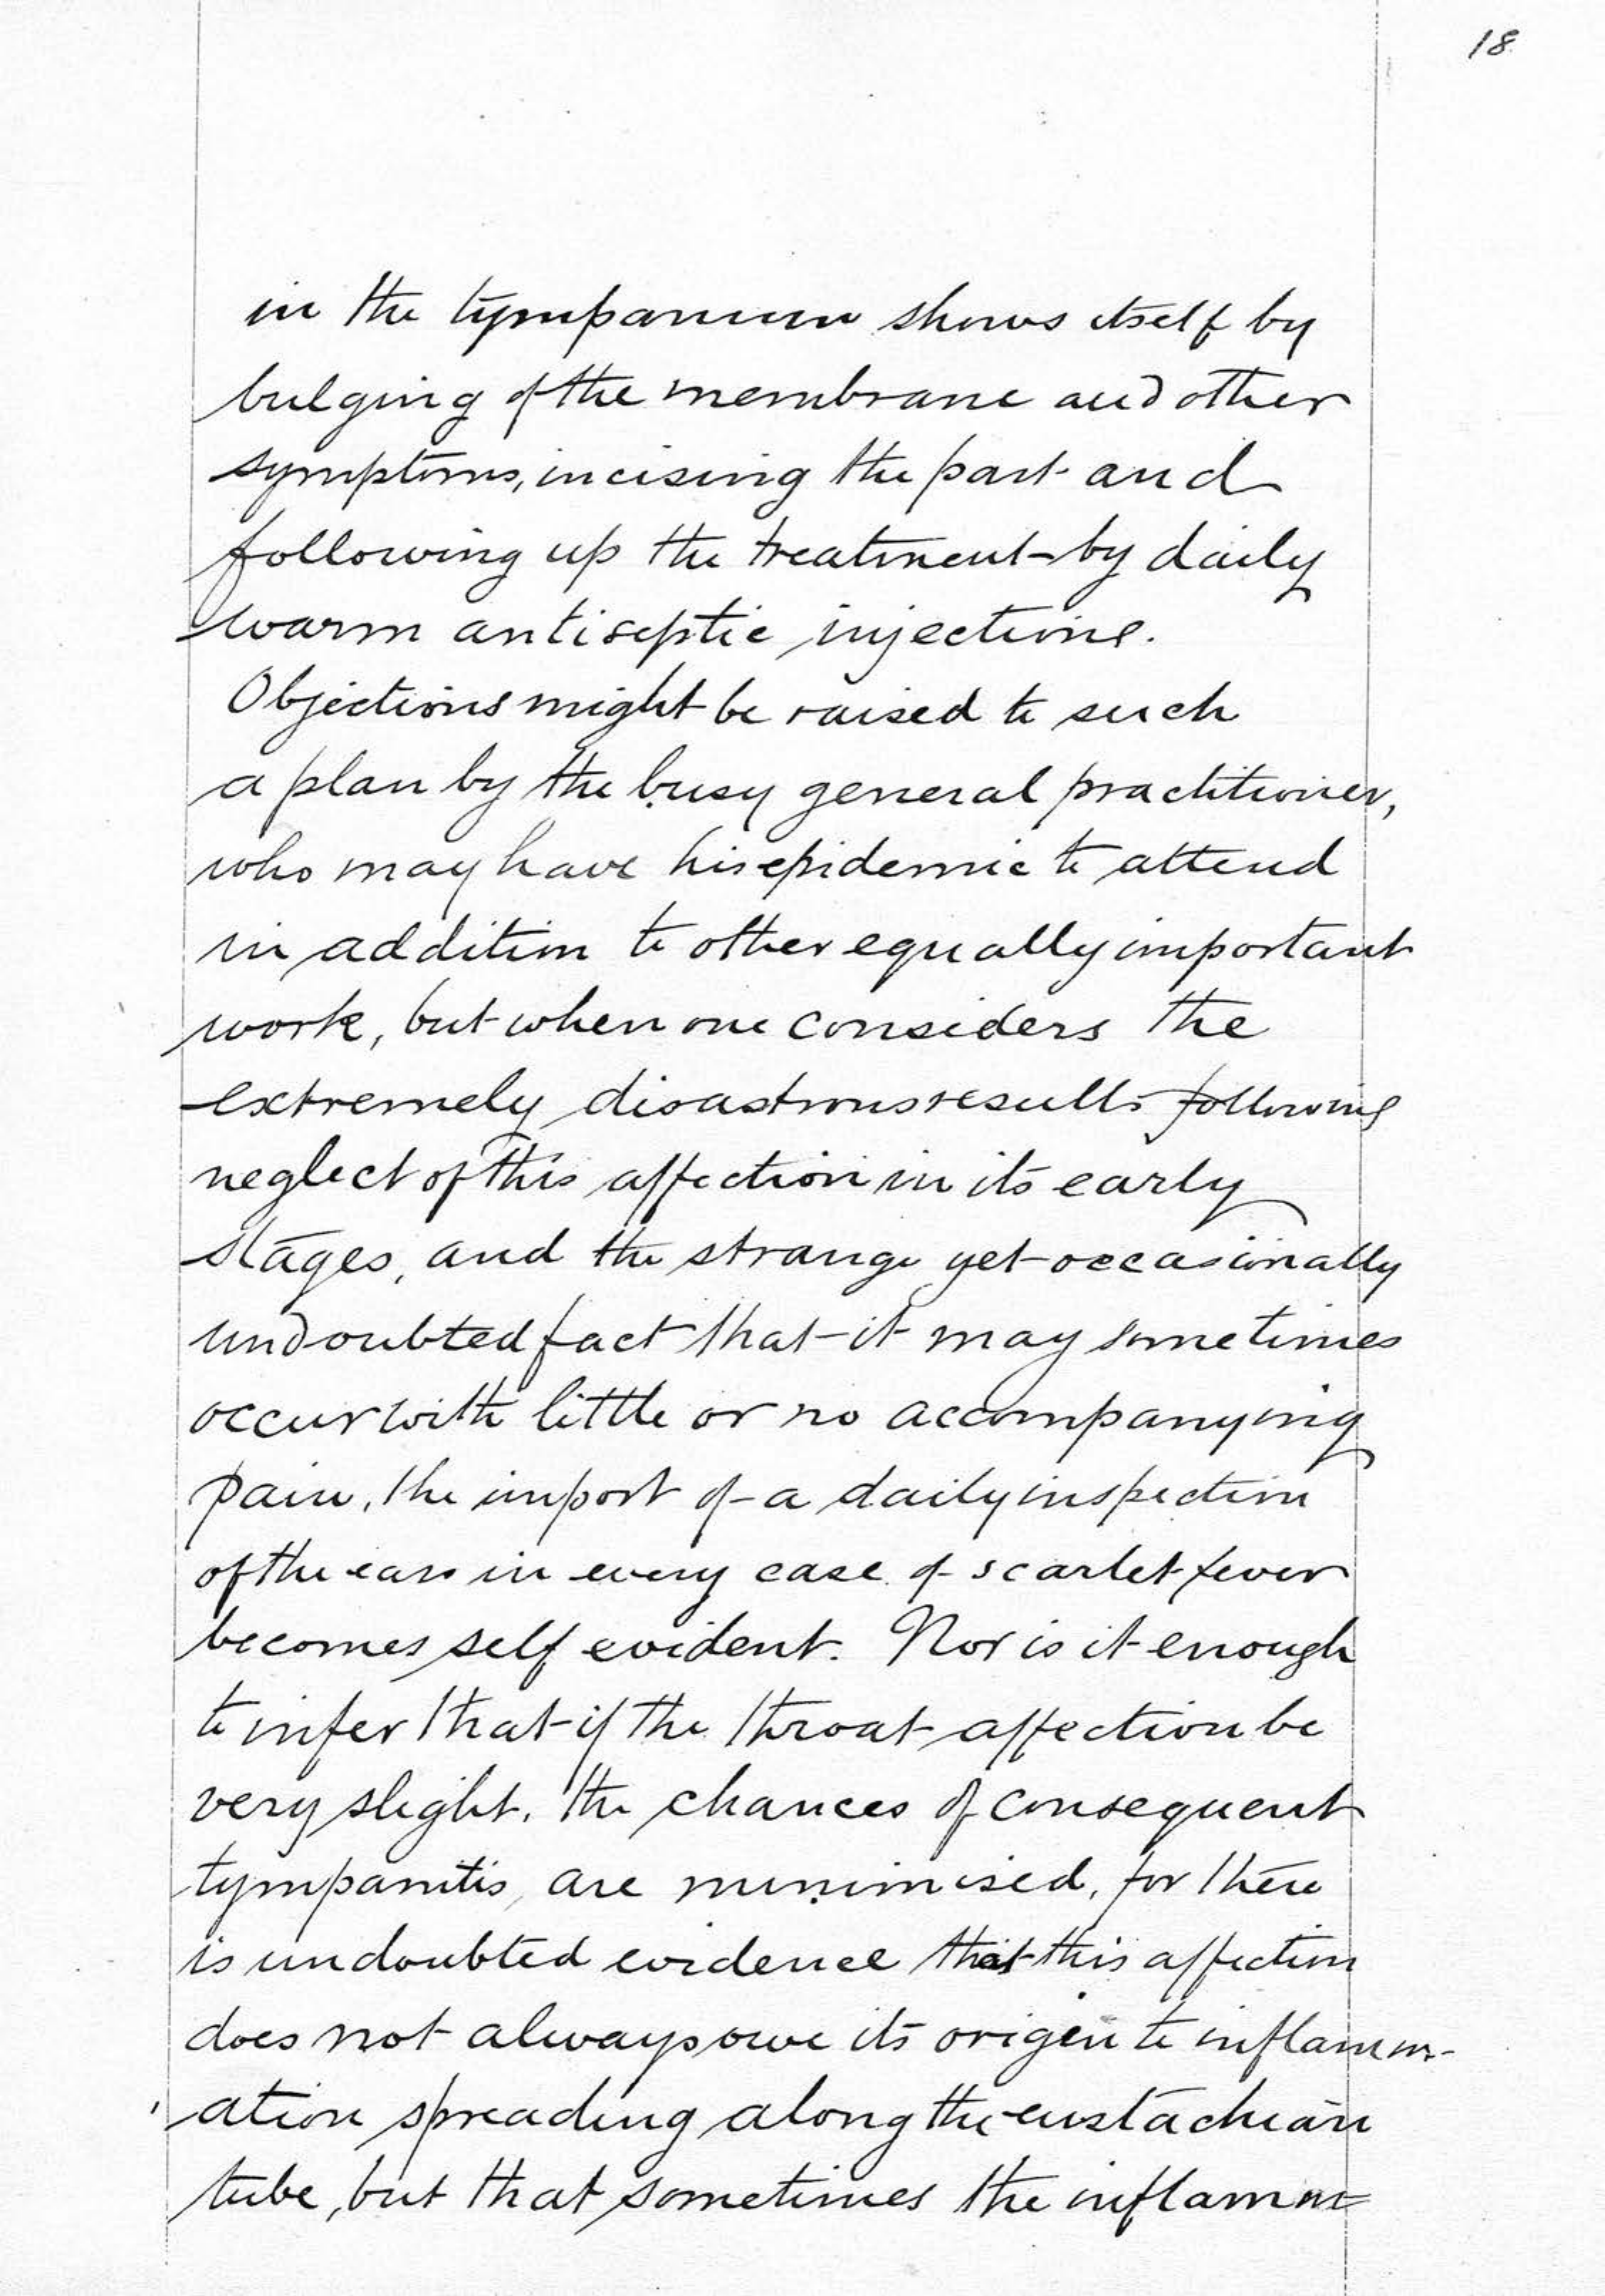 18
in the tympanum shows itself by
bulging of the membrane and other
symptoms, incising the part and
following up the treatment by daily
warm antiseptic injections.
Objections might be raised to such
a plan by the busy general practitioner,
who may have his epidemic to attend
in addition to other equally important
work, but when one considers the
extremely disastrous results following
neglect of this affection in its early
stages, and the strange yet occasionally
undoubted fact that it may sometimes
occur with little or no accompanying
pain, the import of a daily inspection
of the ears in every case of scarlet fever
becomes self evident. Nor is it enough
to infer that if the throat affection be
very slight, the chances of consequent
tympanitis, are minimised, for there
is undoubted evidence that this affection
does not always owe its origin to inflamm-
ation spreading along the eustachian
tube, but that sometimes the inflamm=